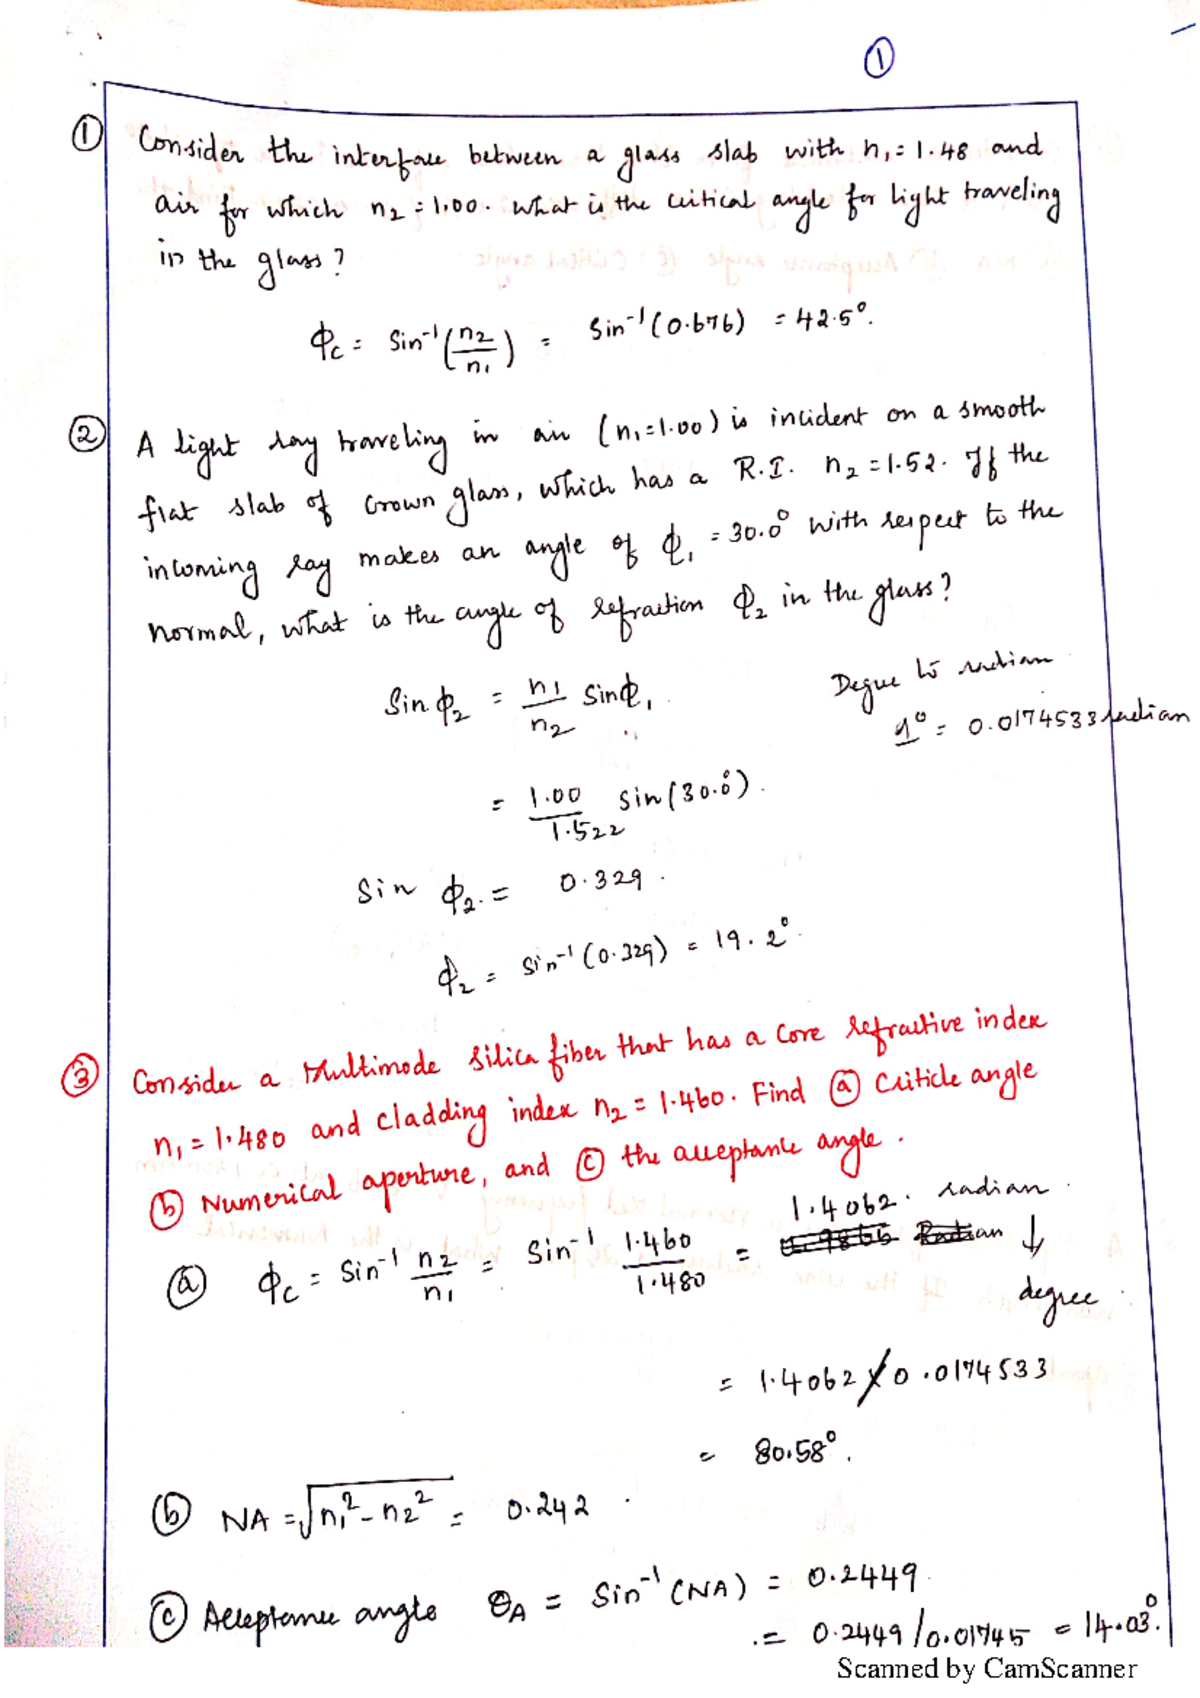 ①
① Consider the interface between a glass slab with n₁ = 1.48 and
air for which n₂ = 1.00. What is the critical angle for light traveling
in the glass?
ϕc = Sin⁻¹(n₂/n₁) = Sin⁻¹(0.676) = 42.5°.
② A light ray traveling in air (n₁=1.00) is incident on a smooth
flat slab of crown glass, which has a R.I. n₂ = 1.52. If the
incoming ray makes an angle of ϕ₁ = 30.0° with respect to the
normal, what is the angle of refraction ϕ₂ in the glass?
Sin ϕ₂ = n₁/n₂ Sin ϕ₁.
Degree to radian
1° = 0.0174533 radian
= 1.00/1.522 Sin(30.0°).
Sin ϕ₂ = 0.329.
ϕ₂ = Sin⁻¹(0.329) = 19.2°.
③ Consider a Multimode Silica fiber that has a core refractive index
n₁ = 1.480 and cladding index n₂ = 1.460. Find ⓐ Criticle angle
ⓑ Numerical aperture, and ⓒ the acceptance angle.
ⓐ ϕc = Sin⁻¹ n₂/n₁ = Sin⁻¹ 1.460/1.480 = 1.4062. radian
↓
degree
= 1.4062 / 0.0174533
= 80.58°.
ⓑ NA = √n₁² - n₂² = 0.242.
ⓒ Acceptance angle θA = Sin⁻¹(NA) = 0.2449
= 0.2449/0.01745 = 14.03°.
Scanned by CamScanner